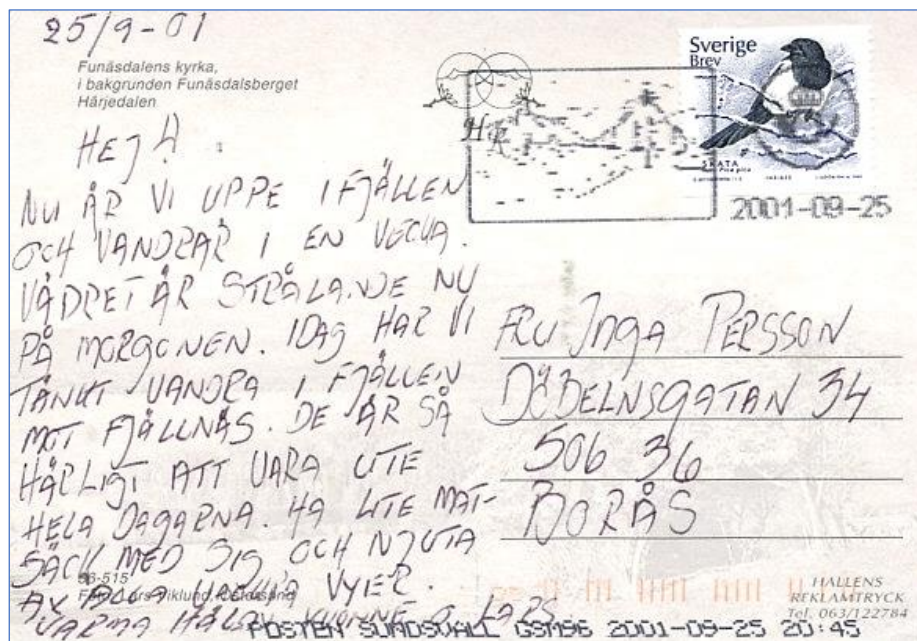 25/9-01
Funäsdalens kyrka,
i bakgrunden Funäsdalsberget
Härjedalen
HEJ!
NU ÄR VI UPPE I FJÄLLEN
OCH VANDRAR I EN VECKA.
VÄDRET ÄR STRÅLANDE NU
PÅ MORGONEN. IDAG HAR VI
TÄNKT VANDRA I FJÄLLEN
MOT FJÄLLNÄS. DE ÄR SÅ
HÄRLIGT ATT VARA UTE
HELA DAGARNA. HA LITE MAT-
SÄCK MED SIG OCH NJUTA
AV ALLA VACKRA VYER.
VARMA HÄLSN YVONNE O LARS
Sverige
Brev
SKATA
Pica pica
2001-09-25
FRU INGA PERSSON
DÖBELNSGATAN 34
506 36
BORÅS
-515
Foto: Lars Viklund, Östersund
HALLENS
REKLAMTRYCK
Tel. 063/122784
POSTEN SUNDSVALL GSM96 2001-09-25 20:45